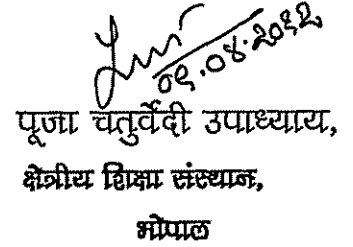 ०९.०४.२०१२
पूजा चतुर्वेदी उपाध्याय,
क्षेत्रीय शिक्षा संस्थान,
भोपाल